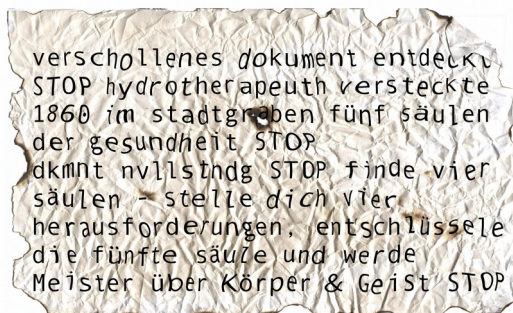 verschollenes dokument entdeckt
STOP hydrotherapeuth versteckte
1860 im stadtgraben fünf säulen
der gesundheit STOP
dkmnt nvllstndg STOP finde vier
säulen - stelle dich vier
herausforderungen, entschlüssele
die fünfte säule und werde
Meister über Körper & GeiSt STOP